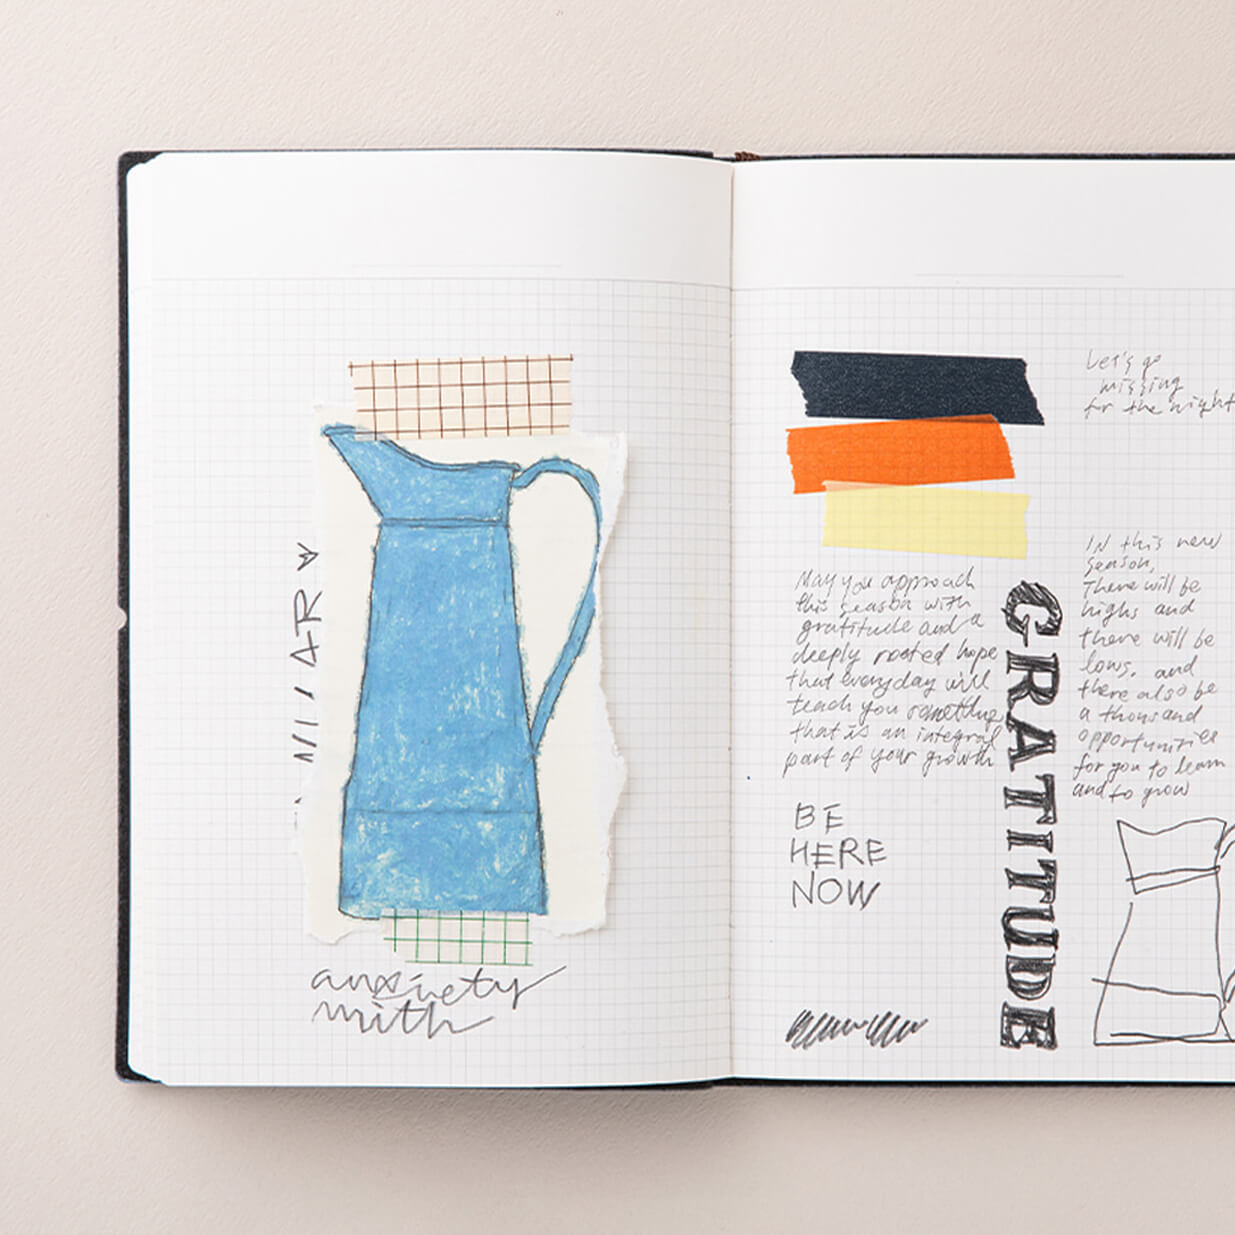 anxiety
with
May you approach
this season with
gratitude and a
deeply rooted hope
that everyday will
teach you something
that is an integral
part of your growth
BE
HERE
NOW
GRATITUDE
Let's go
missing
for the night
IN this new
season,
There will be
highs and
there will be
lows, and
there also be
a thousand
opportunities
for you to learn
and to grow